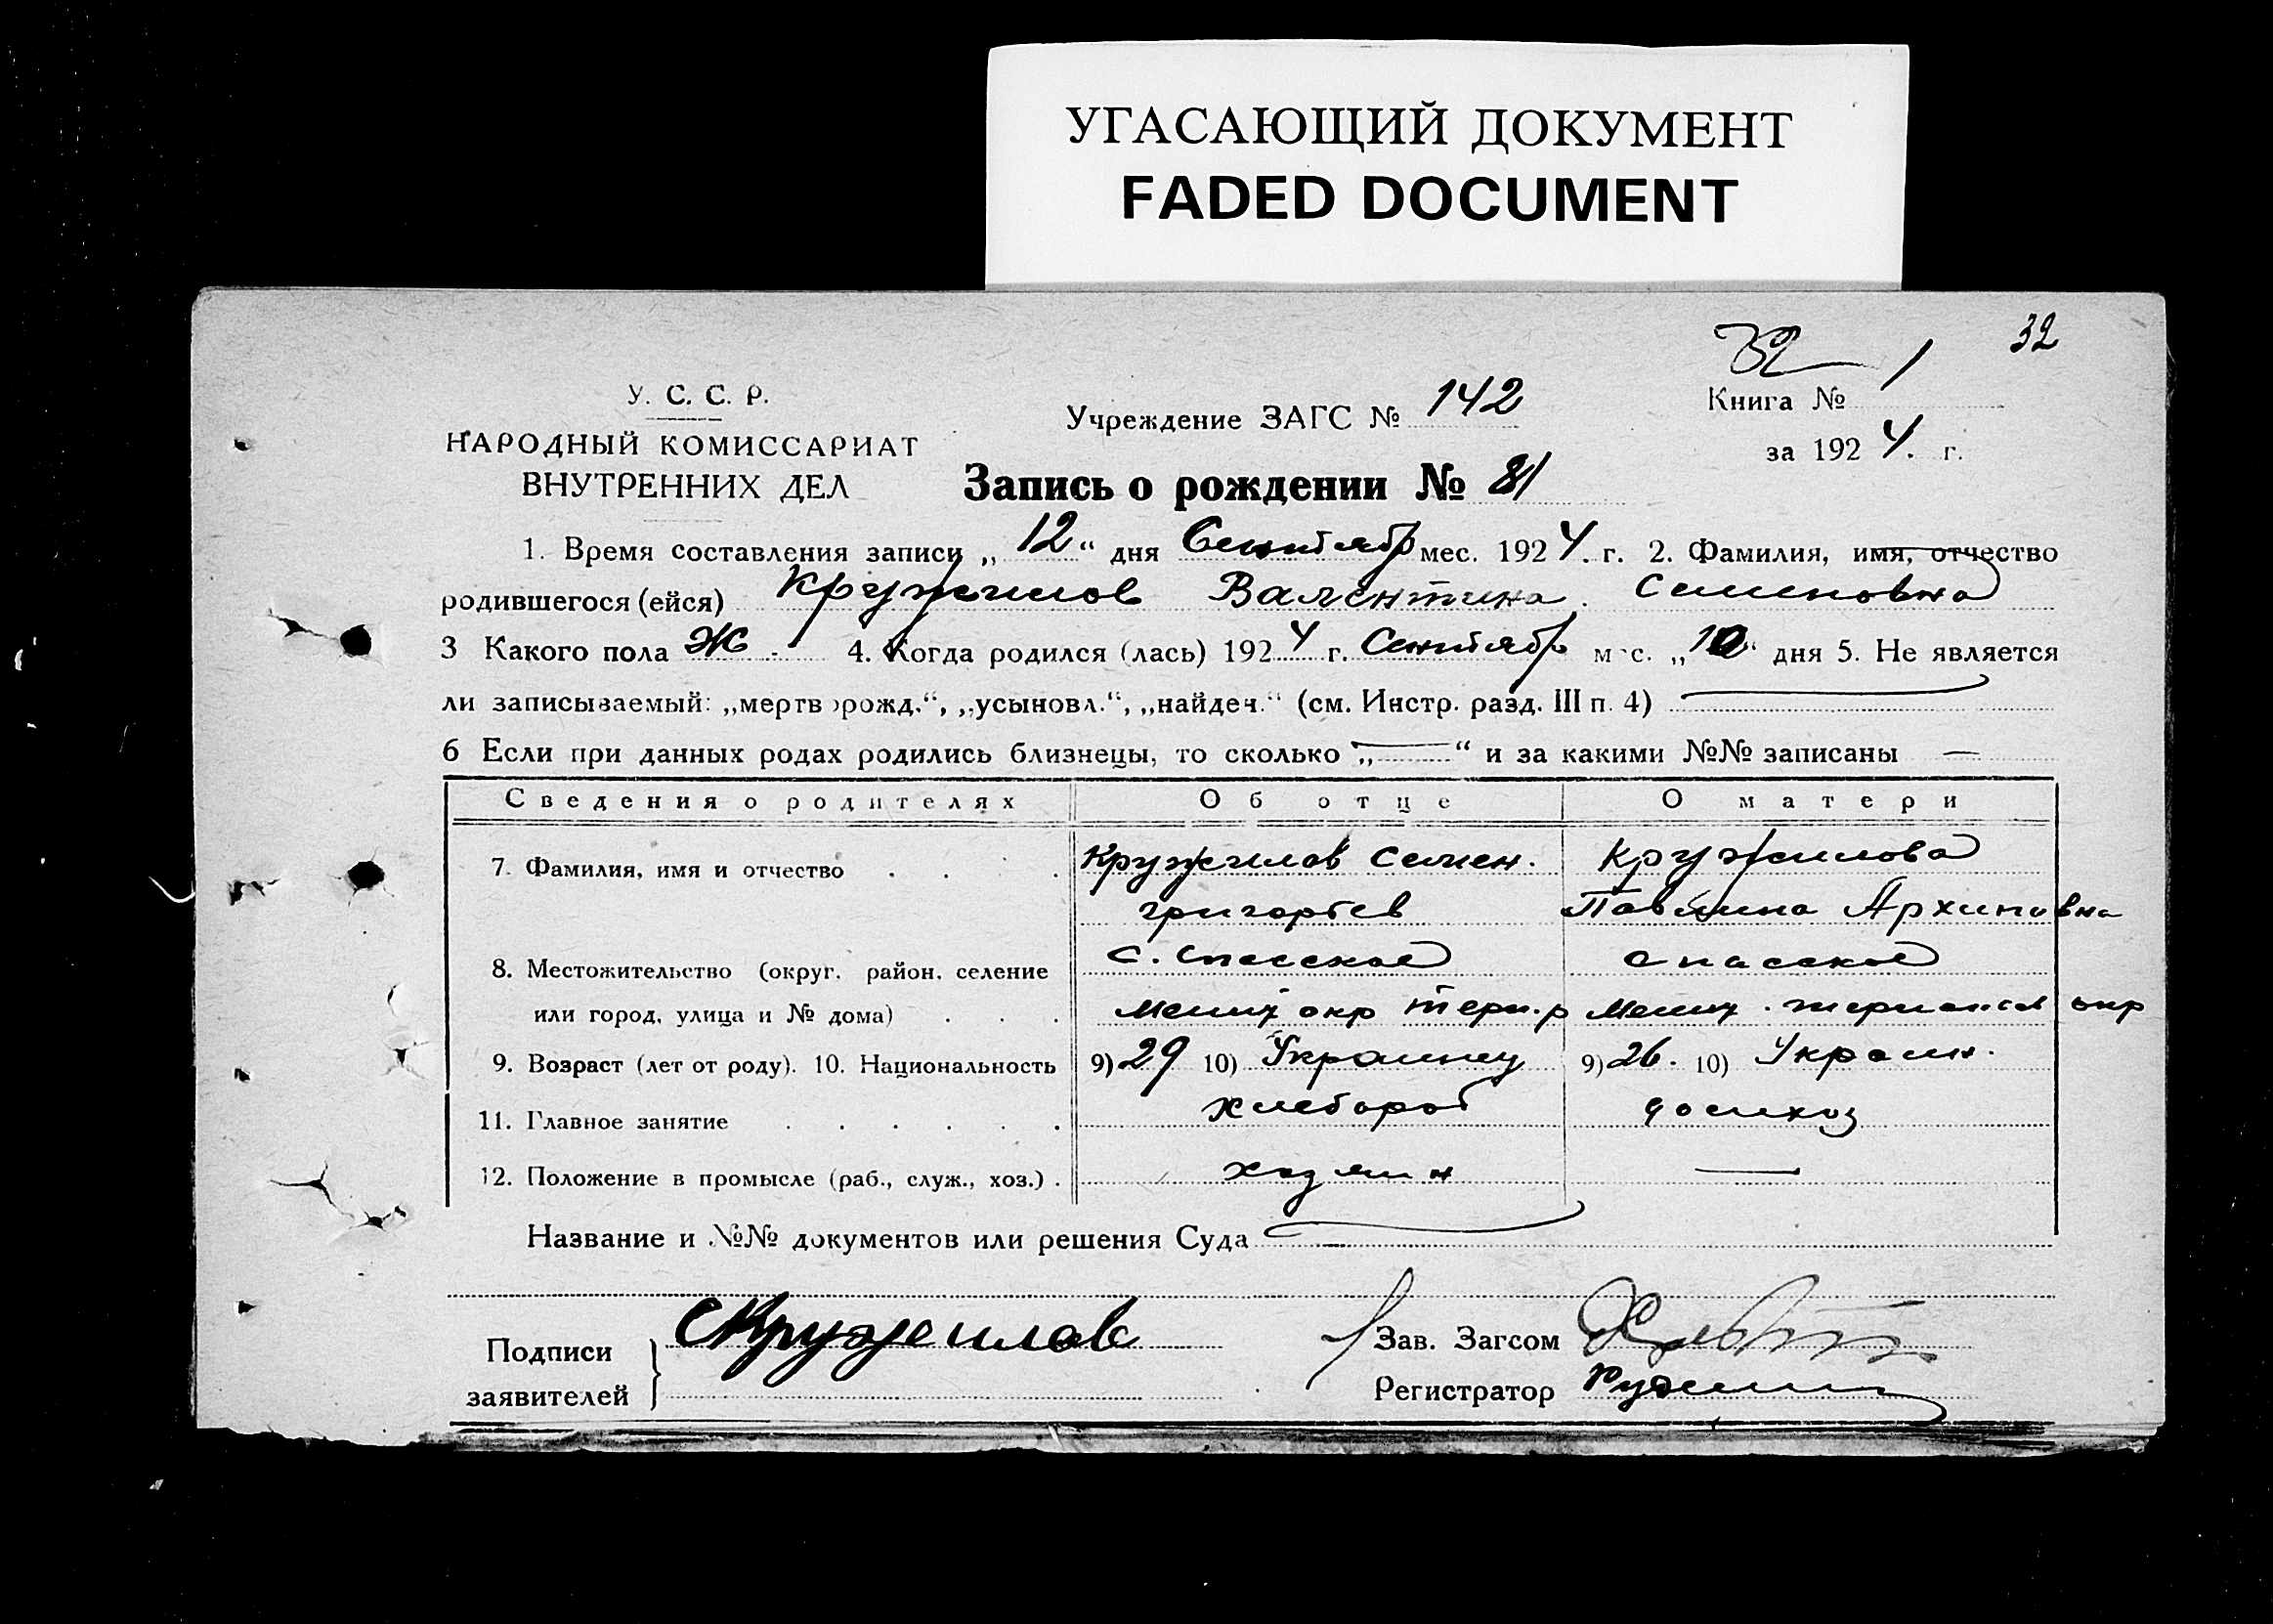 УГАСАЮЩИЙ ДОКУМЕНТ
FADED DOCUMENT
32
32
У. С. С. Р.
НАРОДНЫЙ КОМИССАРИАТ
ВНУТРЕННИХ ДЕЛ
Учреждение ЗАГС № 142
Книга № 1
за 1924 г.
Запись о рождении № 81
1. Время составления записи „12“ дня Сентябр мес. 1924. г. 2. Фамилия, имя, отчество
родившегося (ейся) Кружилов Валентина Семеновна
3 Какого пола Ж 4. Когда родился (лась) 1924 г. Сентябр мес. „10“ дня 5. Не является
ли записываемый: „мертворожд.“, „усыновл.“, „найдеч.“ (см. Инстр. разд. III п. 4) —
6 Если при данных родах родились близнецы, то сколько „—“ и за какими №№ записаны —
Сведения о родителях Об отце О матери
7. Фамилия, имя и отчество Кружилов Семен. Кружилова
григорьев Архиповна
8. Местожительство (округ, район, селение С. Спасское Спасское
или город, улица и № дома) окр окр
9. Возраст (лет от роду). 10. Национальность 9) 29 10) Украинец 9) 26. 10) Украин.
11. Главное занятие Хлебороб домхоз
12. Положение в промысле (раб., служ., хоз.) хозяин —
Название и №№ документов или решения Суда —
Подписи
заявителей
СКружилов
Зав. Загсом
Регистратор